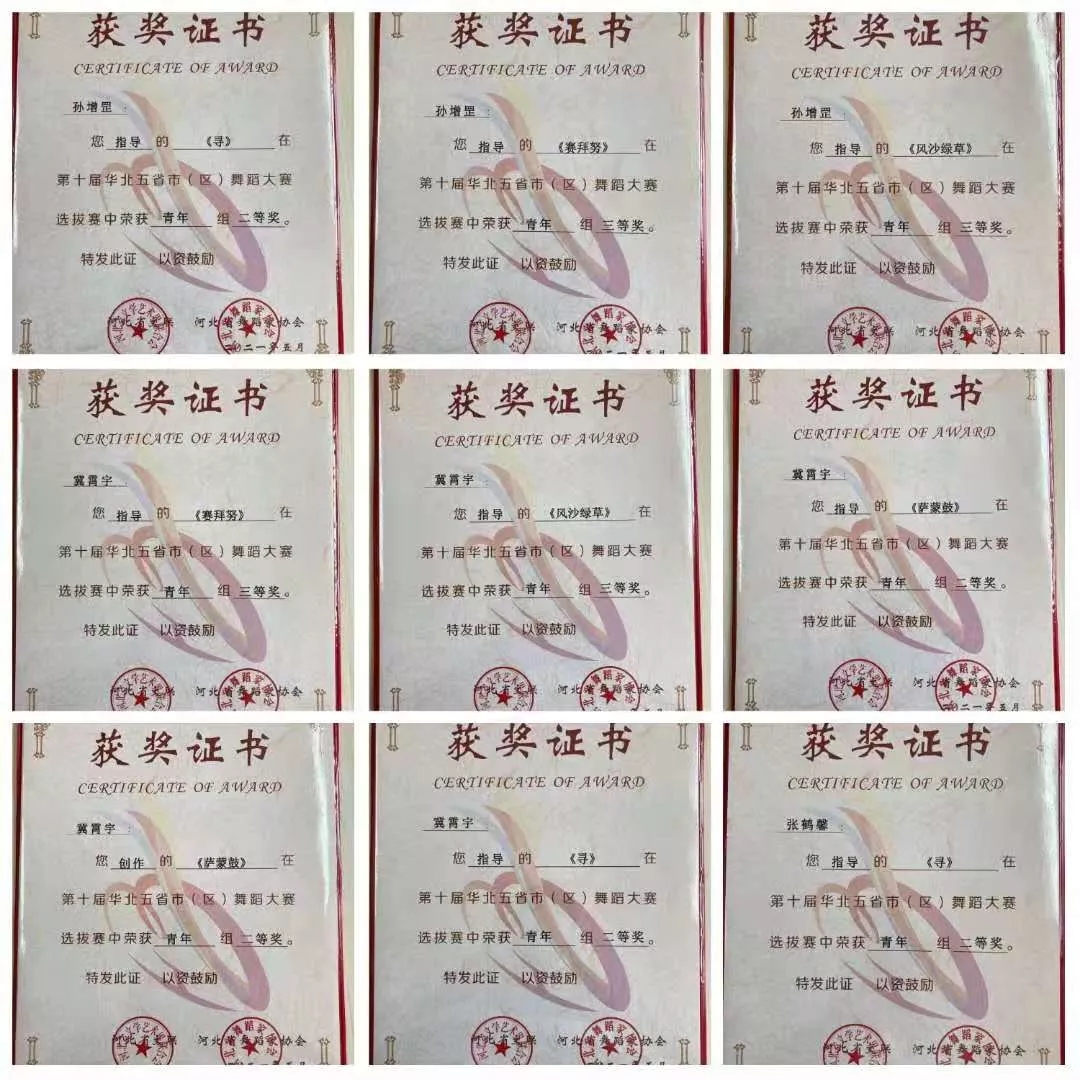 获奖证书
CERTIFICATE OF AWARD
孙增罡：
您 指导 的 《寻》 在
第十届华北五省市（区）舞蹈大赛
选拔赛中荣获 青年 组 二等奖。
特发此证 以资鼓励
河北省文联 河北省舞蹈家协会
二〇二一年五月
获奖证书
CERTIFICATE OF AWARD
孙增罡：
您 指导 的 《赛拜努》 在
第十届华北五省市（区）舞蹈大赛
选拔赛中荣获 青年 组 三等奖。
特发此证 以资鼓励
河北省文联 河北省舞蹈家协会
获奖证书
CERTIFICATE OF AWARD
孙增罡：
您 指导 的 《风沙绿草》 在
第十届华北五省市（区）舞蹈大赛
选拔赛中荣获 青年 组 三等奖。
特发此证 以资鼓励
河北省文联 河北省舞蹈家协会
获奖证书
CERTIFICATE OF AWARD
冀霄宇：
您 指导 的 《赛拜努》 在
第十届华北五省市（区）舞蹈大赛
选拔赛中荣获 青年 组 三等奖。
特发此证 以资鼓励
河北省文联 河北省舞蹈家协会
获奖证书
CERTIFICATE OF AWARD
冀霄宇：
您 指导 的 《风沙绿草》 在
第十届华北五省市（区）舞蹈大赛
选拔赛中荣获 青年 组 三等奖。
特发此证 以资鼓励
河北省文联 河北省舞蹈家协会
获奖证书
CERTIFICATE OF AWARD
冀霄宇：
您 指导 的 《萨蒙鼓》 在
第十届华北五省市（区）舞蹈大赛
选拔赛中荣获 青年 组 二等奖。
特发此证 以资鼓励
河北省文联 河北省舞蹈家协会
二〇二一年五月
获奖证书
CERTIFICATE OF AWARD
冀霄宇：
您 创作 的 《萨蒙鼓》 在
第十届华北五省市（区）舞蹈大赛
选拔赛中荣获 青年 组 二等奖。
特发此证 以资鼓励
河北省文联 河北省舞蹈家协会
获奖证书
CERTIFICATE OF AWARD
冀霄宇：
您 指导 的 《寻》 在
第十届华北五省市（区）舞蹈大赛
选拔赛中荣获 青年 组 二等奖。
特发此证 以资鼓励
河北省文联 河北省舞蹈家协会
获奖证书
CERTIFICATE OF AWARD
张鹤馨：
您 指导 的 《寻》 在
第十届华北五省市（区）舞蹈大赛
选拔赛中荣获 青年 组 二等奖。
特发此证 以资鼓励
河北省文联 河北省舞蹈家协会